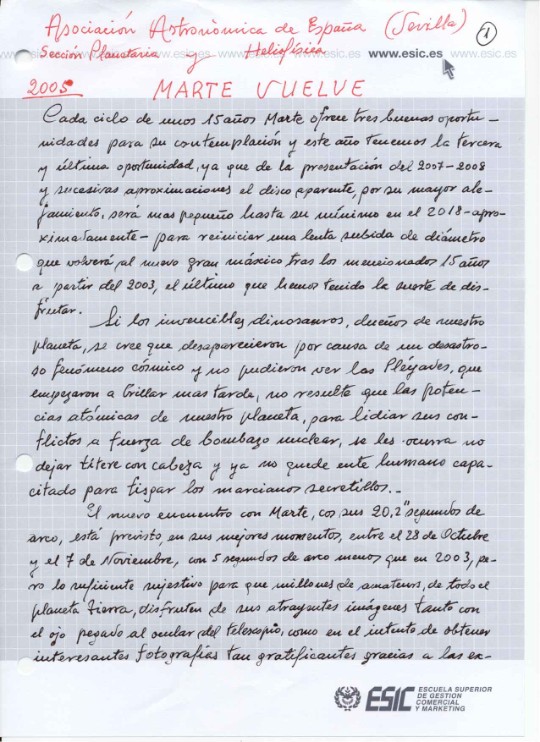 Asociación Astronómica de España (Sevilla) 1
Sección Planetaria y Heliofísica www.esic.es
2005 MARTE VUELVE
Cada ciclo de unos 15 años Marte ofrece tres buenas oportu-
nidades para su contemplación y este año tenemos la tercera
y última oportunidad, ya que de la presentación del 2007-2008
y sucesivas aproximaciones el disco aparente, por su mayor ale-
jamiento, será mas pequeño hasta su mínimo en el 2018-apro-
ximadamente- para reiniciar una lenta subida de diámetro
que volverá al nuevo gran máximo tras los mencionados 15 años
a partir del 2003, el último que hemos tenido la suerte de dis-
frutar.
Si los invencibles dinosauros, dueños de nuestro
planeta, se cree que desaparecieron por causa de un desastro-
so fenómeno cósmico y no pudieron ver las Pléyades, que
empezaron a brillar mas tarde, no resulte que las poten-
cias atómicas de nuestro planeta, para lidiar sus con-
flictos a fuerza de bombazo nuclear, se les ocurra no
dejar títere con cabeza y ya no quede ente humano capa-
citado para fisgar los marcianos secretillos..
El nuevo encuentro con Marte, con sus 20,2" segundos de
arco, está previsto, en sus mejores momentos, entre el 28 de Octubre
y el 7 de Noviembre, con 5 segundos de arco menos que en 2003, pe-
ro lo suficiente sujestivo para que millones de amateurs, de todo el
planeta Tierra, disfruten de sus atrayentes imágenes tanto con
el ojo pegado al ocular del telescopio, como en el intento de obtener
interesantes fotografías tan gratificantes gracias a las ex-
ESIC ESCUELA SUPERIOR
DE GESTION
COMERCIAL
Y MARKETING